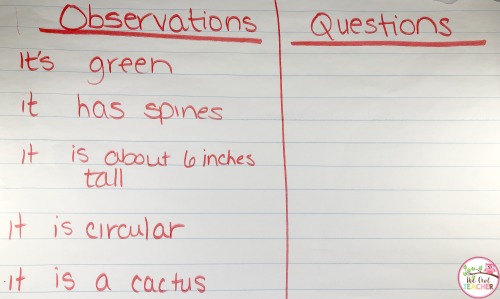 Observations Questions
It's green
it has spines
it is about 6 inches
tall
it is circular
it is a cactus
Hot Owl
TEACHER